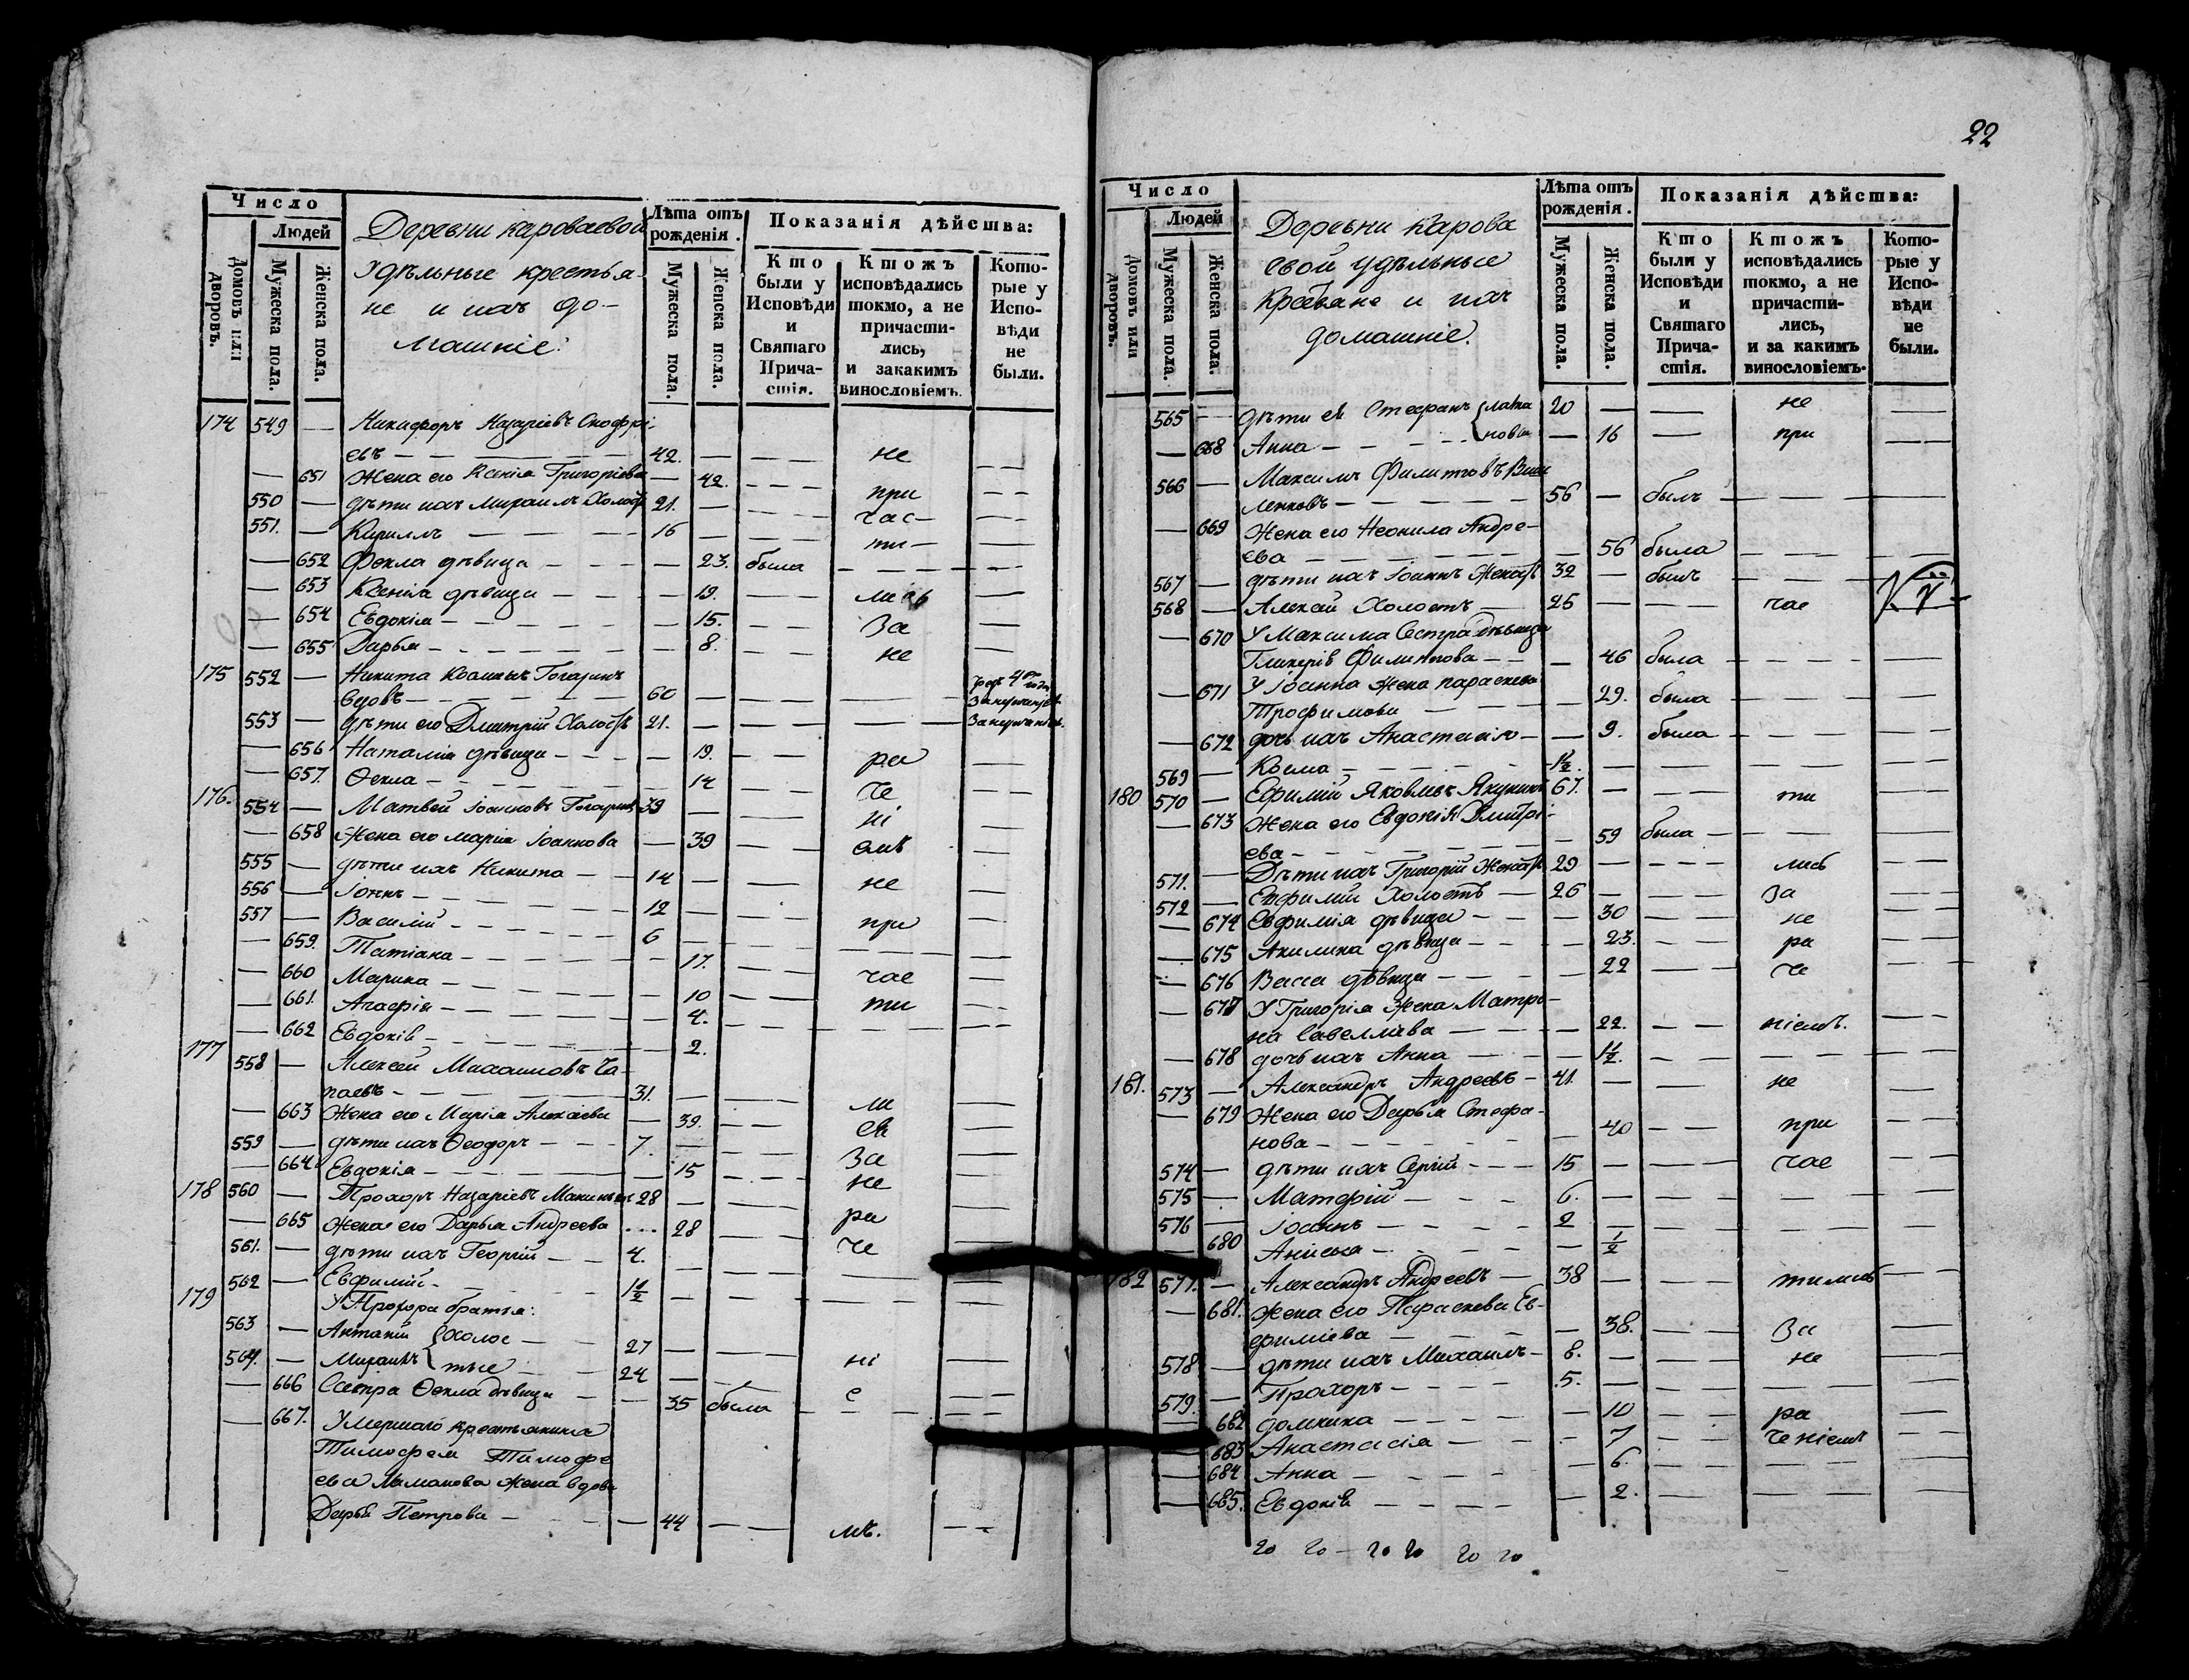 Число
Людей
Домовъ или дворовъ.
Мужеска пола.
Женска пола.
Деревни Кароваевой
Удѣльные крестья-
не и ихъ до-
машніе:
Лѣта отъ рожденія.
Мужеска пола.
Женска пола.
Показанія дѣйства:
Кто были у Исповѣди и Святаго Причастія.
Ктожъ исповѣдались токмо, а не причастились, и закакимъ винословіемъ.
Которые у Исповѣди не были.
174 549 — Никифоръ Назаріевъ
евъ — 42. — — не — —
— 651 Жена его Ксенія Григоріева — 42. — — при — —
550 — дѣти ихъ Михаилъ Холостъ 21. — — час — —
551. — Кириллъ — 16 — — ти — —
— 652 Фекла дѣвица — — 23. была — —
— 653 Ксенія дѣвица — — 19. — — лись —
— 654 Евдокія — — 15. — — За —
— 655 Дарья — — 8. — — не —
175 552 — Никита
— 60 — —
553 — дѣти его Дмитрій Холостъ 21. — — —
— 656 Наталія дѣвица — — 19. — — ра —
— 657. Ѳекла — — 14 — — че —
176. 554 — Матвей Іоанновъ 39 — — ні —
— 658 Жена его Марія Іоаннова — 39 — — емъ —
555 — дѣти ихъ Никита — 14 — — не —
556 — Іоннъ — 12 — — —
557 — Василій — 6 — — при —
— 659. Татіана — — 17. — — —
— 660 Марина — — 10 — — час —
— 661. Агафія — — 4. — — ти —
— 662 Евдокія — — 2. — — —
177 558 — Алексей Михаиловъ Ча-
паевъ — 31. — — ли —
— 663 Жена его Марія Алексіева — 39. — — сь —
559 — дѣти ихъ Ѳеодоръ — 7. — — За —
— 664 Евдокія — — 15 — — не —
178 560 — Прохоръ Назаріевъ 28 — — ра —
— 665 Жена его Дарья Андреева — 28 — — че —
561. — дѣти ихъ Георгій — 4. — — —
562 — Евфимій — 1½ — — —
179 У Прохора братья:
563 — Антоній { холос — 27 — — —
564. — Михаилъ { тые — 24 — — ні —
— 666 Сестра Ѳекла дѣвица — — 35 была — е —
— 667. Умершаго крестьянина
Тимофея Тимофе
ева жена вдова
Дарья Петрова — — 44 — — мъ. — —
22
Число
Людей
Домовъ или дворовъ.
Мужеска пола.
Женска пола.
Деревни Карова
евой удѣльные
Крестьяне и ихъ
домашніе.
Лѣта отъ рожденія.
Мужеска пола.
Женска пола.
Показанія дѣйства:
Кто были у Исповѣди и Святаго Причастія.
Ктожъ исповѣдались токмо, а не причастились, и за какимъ винословіемъ.
Которые у Исповѣди не были.
565 — дѣти ея Стефанъ 20 — — не —
— 668 Анна — — 16 — при —
566 — Максимъ Филиповъ
ленковъ — 56 — былъ — —
— 669 Жена его Неонила Андре-
ева — — 56 была — —
567 — дѣти ихъ Іоаннъ Женатъ 32 — былъ — —
568 — Алексій Холостъ — 25 — — час
— 670 У Максима Сестра дѣвица
Гликерія Филиппова — — 46 была — —
— 671 У Іоанна жена Параскева
Трофимова — — 29. была — —
— 672 дочь ихъ Анастасія — — 9. была — —
569 — Косма — 1½. — — —
180 570 — Ефимій Яковлевъ Якунинъ 67. — — ти —
— 673 Жена его Евдокія Дмитрі-
ева — — 59 была — —
571. — Дѣти ихъ Григорій Женатъ 29 — — лись —
572 — Евфимій Холостъ — 26 — — За —
— 674 Евфимія дѣвица — — 30 — не —
— 675 Акилина дѣвица — — 23. — ра —
— 676 Васса дѣвица — — 22 — че —
— 677 У Григорія жена Матро-
на Савеллева — — 22. — — ніемъ. —
— 678 дочь ихъ Анна — — 1½. — — —
181. 573 — Александръ Андреевъ — 41. — — не —
— 679 Жена его Дарья Стефа-
нова — — 40 — — при —
574 — дѣти ихъ Сергій — 15 — — час —
575 — Матфій — 6. — — —
576 — Іоаннъ — 2 — — —
— 680 Анисья — — ½ — — —
182 577. — Александръ Андреевъ — 38 — — тились —
— 681. Жена его Параскева Ев-
фиміева — — 38. — — За —
578 — дѣти ихъ Михаилъ — 8. — — не —
579. — Прохоръ — 5. — — —
— 682 Домника — — 10 — — ра —
— 683 Анастасія — — 7 — — ченіемъ —
— 684 Анна — — 6. — — —
— 685. Евдокія — — 2. — — —